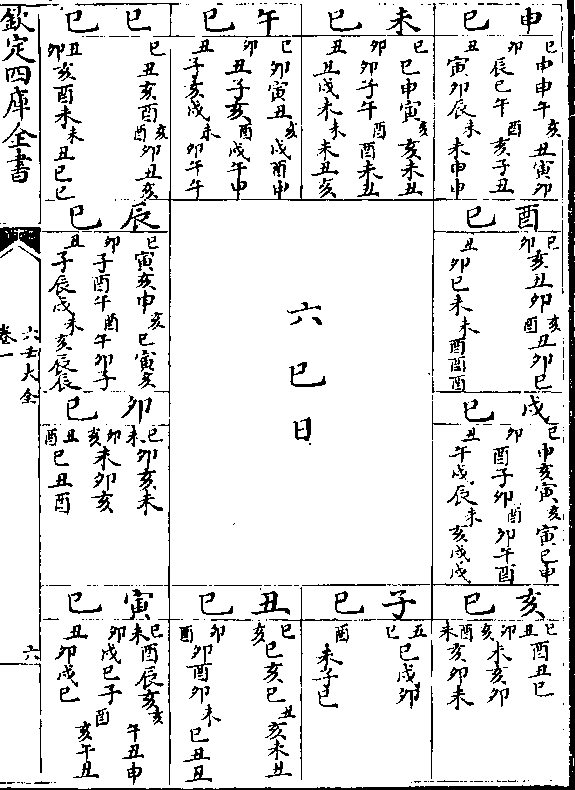 申巳
巳申申午亥丑寅卯
卯辰巳午酉亥子丑
丑寅卯辰未未申申
未巳
巳巳申寅亥亥未丑
卯卯子午酉酉未丑
丑丑戌未未未丑亥
午巳
巳卯寅丑亥戌酉申
卯丑子亥酉戌午申
丑子亥戌未卯午午
巳巳
巳丑亥酉亥酉卯丑亥
丑卯亥酉未未丑巳巳
酉巳
巳卯亥丑卯亥酉丑卯巳
丑卯巳未未酉酉酉
六巳日
辰巳
巳寅亥申亥巳寅亥
卯子酉午酉午卯子
丑子辰戌未亥辰辰
戌巳
巳申亥寅亥寅巳申
卯酉子卯酉卯午酉
丑午戌辰未亥戌戌
卯巳
巳未卯亥未
卯亥未卯亥
丑酉巳丑酉
亥巳
巳丑酉丑巳
卯亥未亥卯
酉未亥卯未
子巳
丑巳巳戌卯
酉未子巳
丑巳
巳亥巳亥巳丑亥未丑
卯酉卯酉卯未巳丑丑
寅巳
巳未酉辰亥亥午丑申
卯戌巳子酉亥午丑
丑卯戌巳
欽定四庫全書
六壬大全
卷一
六